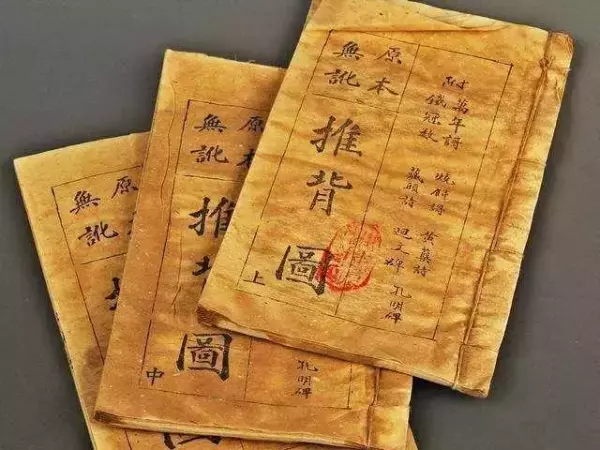 附萬年詩
燒餅詩
黃蘗詩
鐵冠數
藏頭詩
迴文碑
孔明碑
原本
無訛
推背圖
上
原本
無訛
推背
圖
中
孔明碑
原
無訛